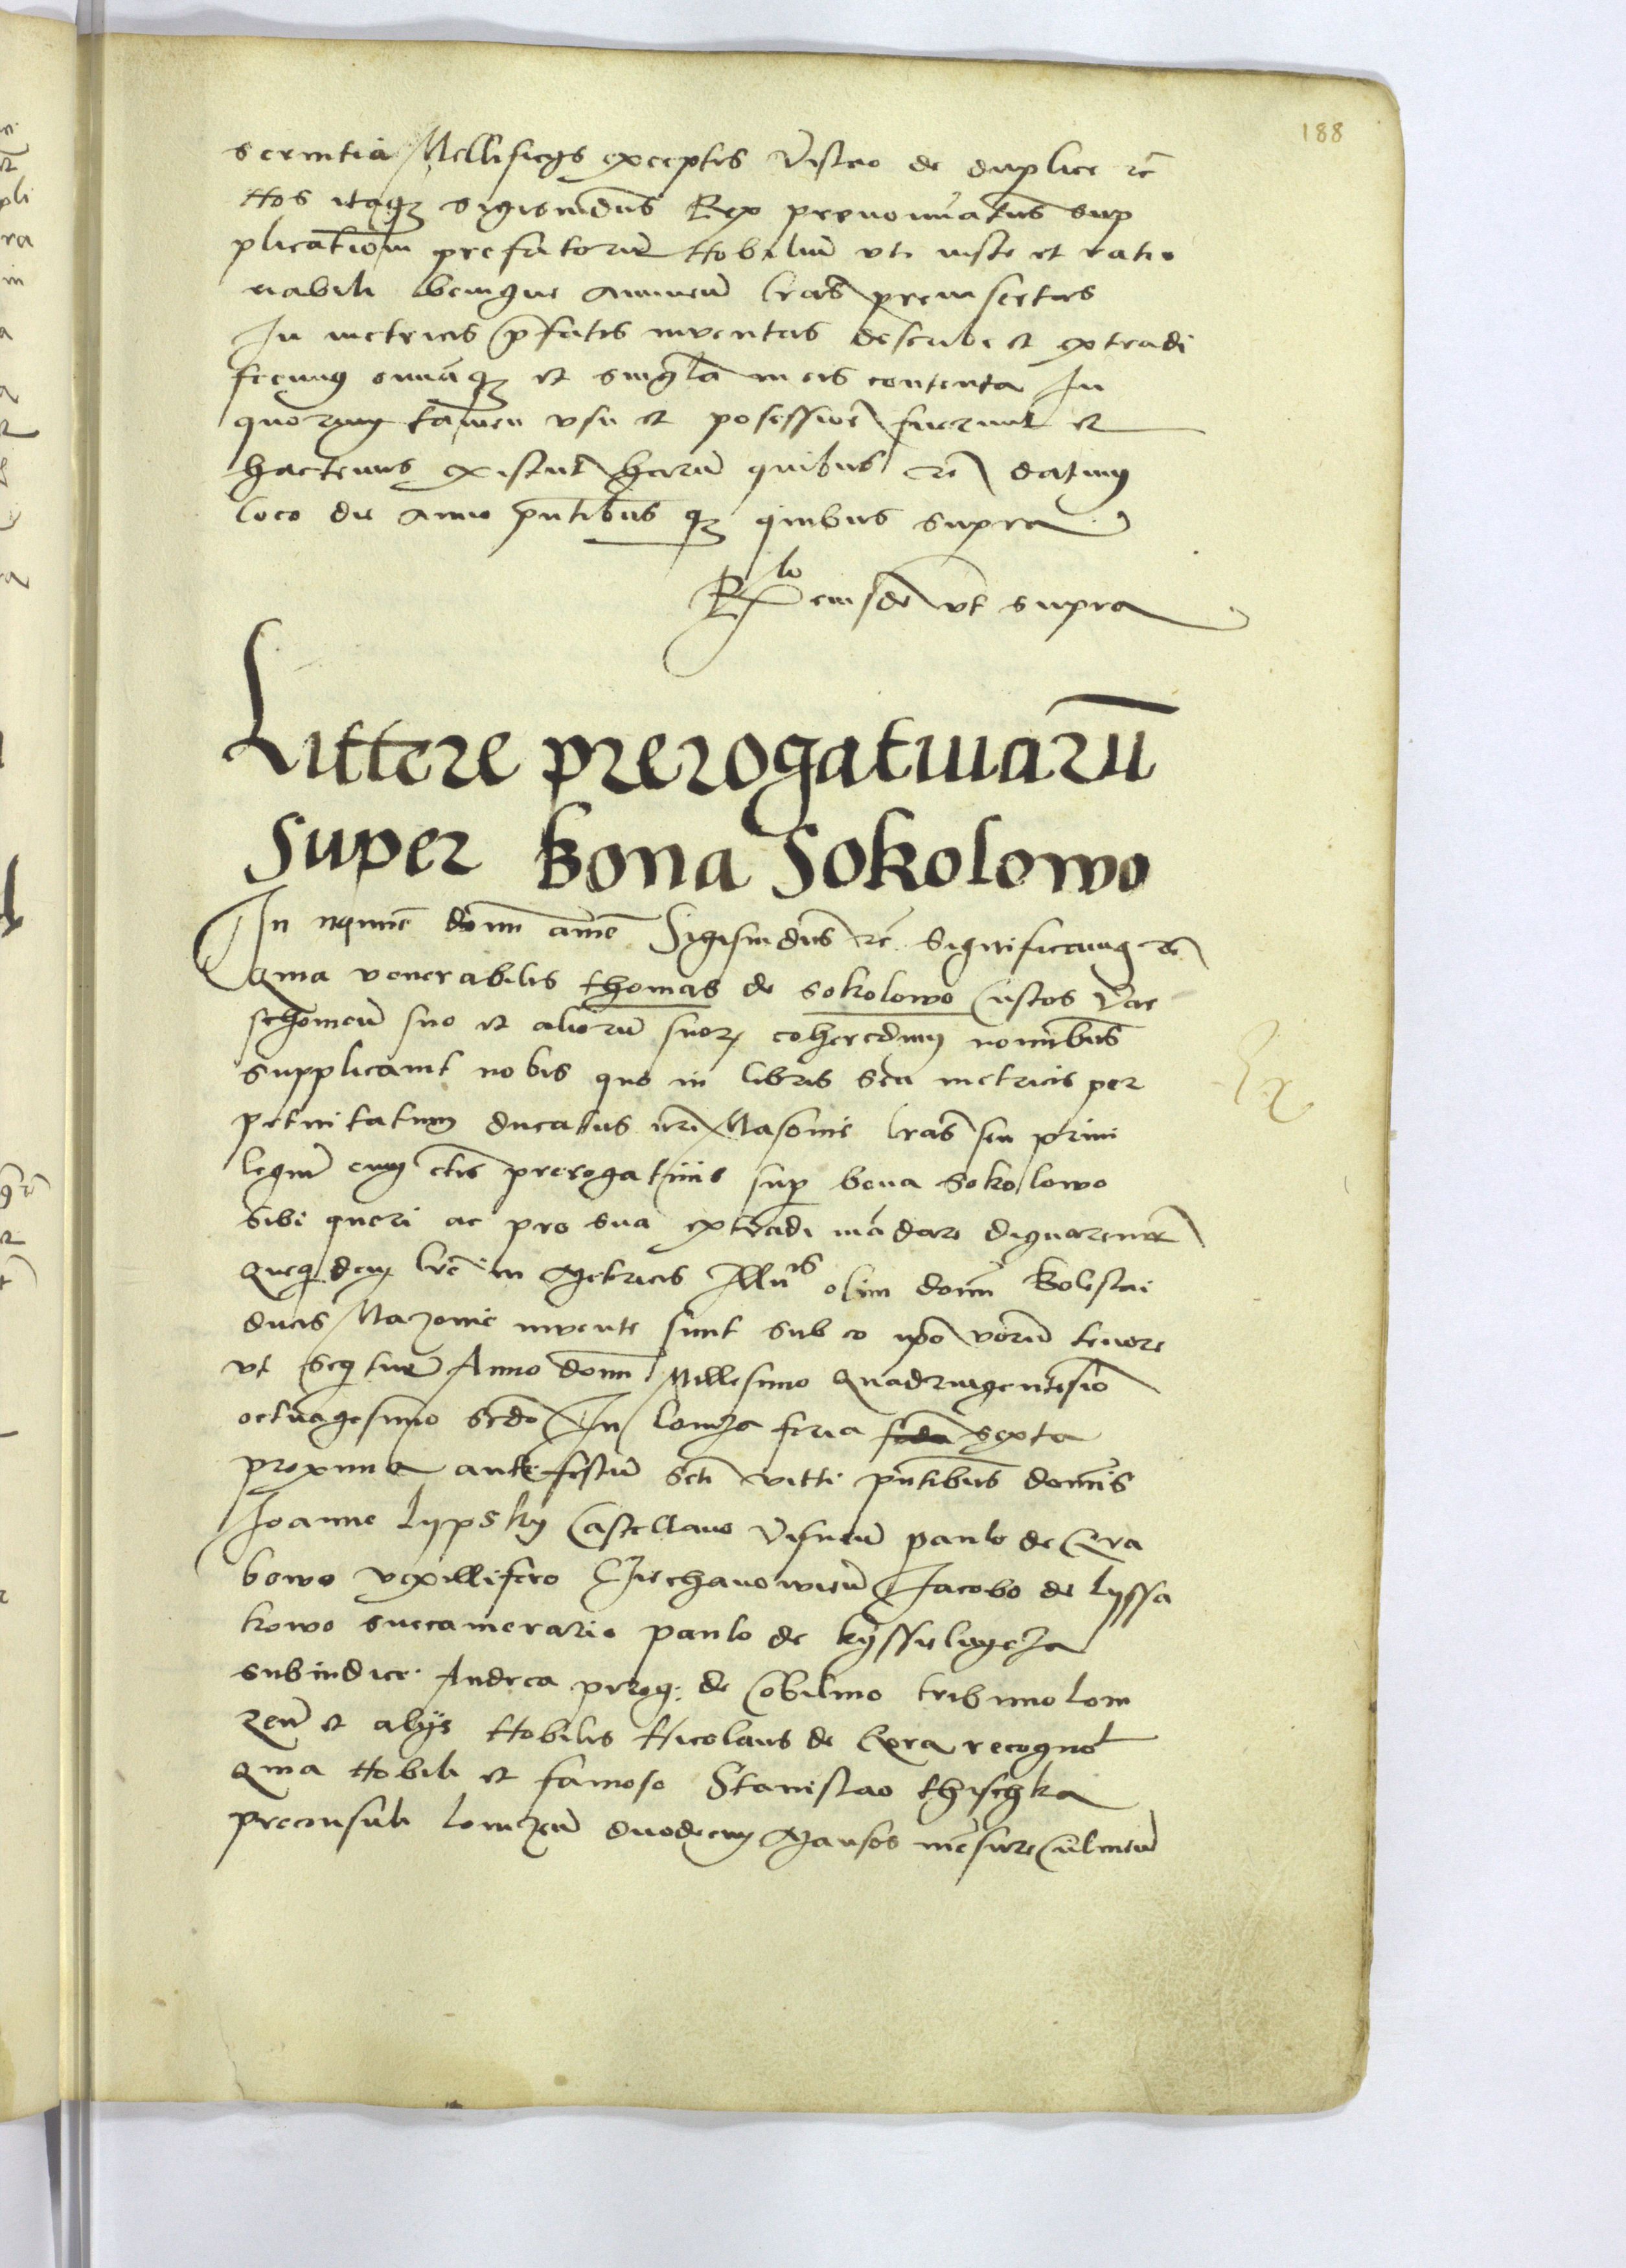 188
servitia Mellificijs exceptis Visteo de duplice rē
Nos itaqz sigismūdus Rex prenominatus sup
plicationi prefatorum Nobilium vti iuste et ratio
nabili benigne annuen̄ lr̄as preinsertas
In metricis p̄fatis inventas describi et extradi
fecimus omniaqz et singl̄a in eis contenta In
quorum tamen vsu et posessione fuerunt et
hactenus existunt harum quibus rē datum
loco die anno pn̄tibus qz quibus supra
Rlo eiusdē vt supra
Littere prerogatiuarū
super Bona Sokolowo
In nomīe dom̄ ameē Sigismūdus rē Significamus rē
Quia venerabilis thomas de sokolowo Custos Var
schouien̄ suo et aliorū suorz coheredum nominibus
supplicauit nobis quo in libris seu metricis per
petuitatum ducatus nr̄i Masouie lr̄as seu priui
legium cum certis prerogatiuis sup bona Sokolowo
sibi queri ac pro sua extradi mādare dignaremur
Quequidem lr̄e in Metricis Illuis olim domī Boleslai
ducis Mazouie inuente sunt sub eo ipso verborū tenore
vt sequitur Anno domī Millesimo Quadringentesimo
octuagesimo scdo In Lomza feria sexta
proxima ante festum scti vitti pn̄tibus domīs
Joanne Lypsky Castellano Visnen̄ paulo de Gra
bowo vexillifero Ciechanowien̄ Jacobo de Lyssa
kowo succamerario paulo de kysselnycza
subiudice Andrea preog: de Cobilino tribuno Lom
zen̄ et alijs Nobilis Nicolaus de Gyra recognoī
Quia Nobili et famoso Stanislao thischka
preconsuli lomzen̄ duodecim Mansos mēsure Culmen̄